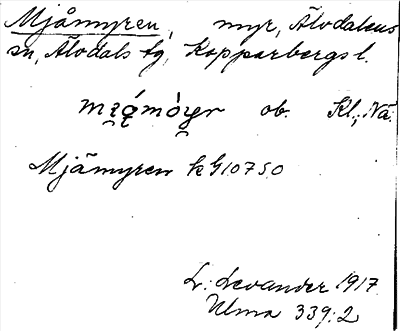 Mjåmyren, myr, Älvdalens
sn, Älvdals tg, Kopparbergs l.
ob. Kl.; Nä.
Mjåmyren k G10750
L. Levander 1917
Ulma 339:2